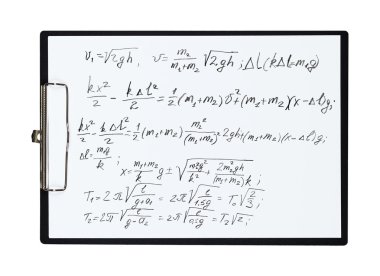 v₁=√2gh, v=m₂/(m₁+m₂) √2gh; Δl(kΔl=m₁g)
kx²/2 - kΔl²/2 = 1/2(m₁+m₂)v²+(m₁+m₂)(x-Δl)g;
kx²/2 - kΔl²/2 = 1/2(m₁+m₂) m₂²/(m₁+m₂)² 2gh+(m₁+m₂)(x-Δl)g;
Δl=m₁g/k; x=(m₁+m₂)/k g±√(m₂²g²/k² + 2m₂²gh/((m₁+m₂)k));
T₁=2π√(l/(g+a₁)) = 2π√(l/1,5g) = T₀√(2/3);
T₂=2π√(l/(g-a₂)) = 2π√(l/0,5g) = T₀√2;